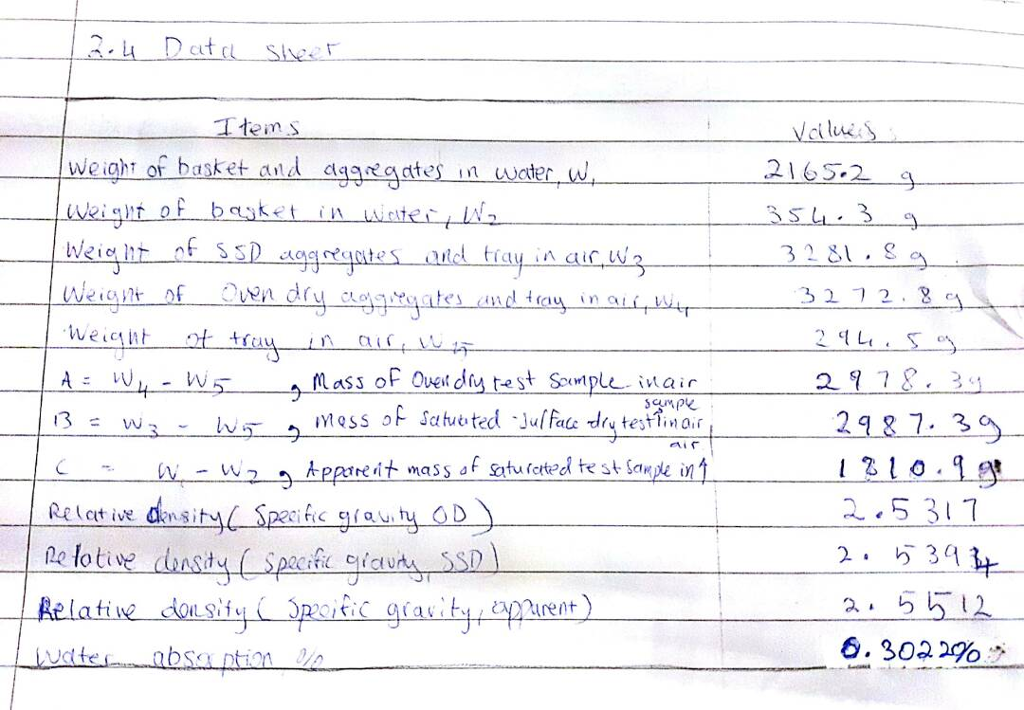 2.4 Data sheet
Items Values
Weight of basket and aggregates in water, W1 2165.2 g
Weight of basket in water, W2 354.3 g
Weight of SSD aggregates and tray in air, W3 3281.8 g
Weight of Oven dry aggregates and tray in air, W4 3272.8 g
Weight of tray in air, W5 294.5 g
A = W4 - W5 , Mass of Oven dry test Sample in air 2978.3g
B = W3 - W5 , mass of Saturated -Surface dry test sample in air 2987.3g
C = W1 - W2 , Apparent mass of saturated test Sample in air 1810.9g
Relative density ( Specific gravity OD ) 2.5317
Relative density ( specific gravity, SSD ) 2.5394
Relative density ( Specific gravity, apparent ) 2.5512
Water absorption % 0.3022%